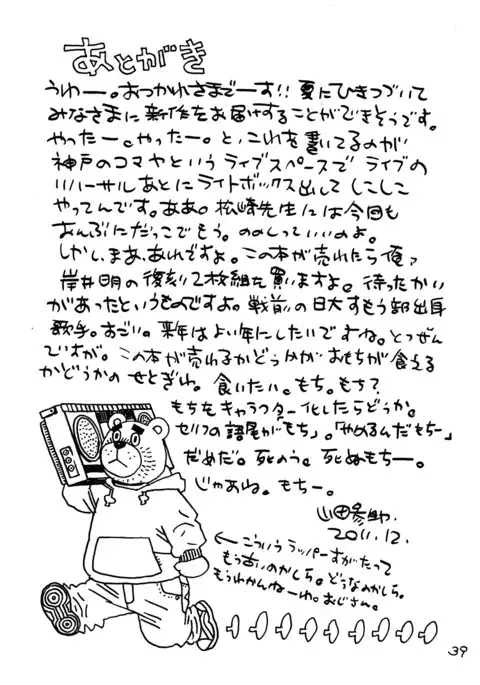 あとがき
うわー。おつかれさまでーす!!夏にひきつづいて
みなさまに新作をお届けすることができそうです。
やったー。やったー。と、これを書いてるのが
神戸のコマヤというライブスペースで ライブの
リハーサルあとにライトボックス出してしこしこ
やってんです。ああ。松崎先生には今回も
おんぶにだっこでもう。ののしっていいのよ。
しかし、まあ、あれですよ。この本が売れたら俺ァ
岸井明の復刻2枚組を買いますよ。待ったかい
があったというものですよ。戦前の日大すもう部出身
歌手。すごい。来年はよい年にしたいですね。とつぜん
ですが。この本が売れるかどうかがおもちが食える
かどうかのせとぎわ。食いたい。もち。もち?
もちをキャラクター化したらどうか。
セリフの語尾が「もち」。「やめるんだもちー」
だめだ。死のう。死ぬもちー。
じゃあね。もちー。
山田参助.
2011.12.
← こういうラッパーすがたって
もう古いのかしら。どうなのかしら。
もうわかんねーわ。おじさん。
39